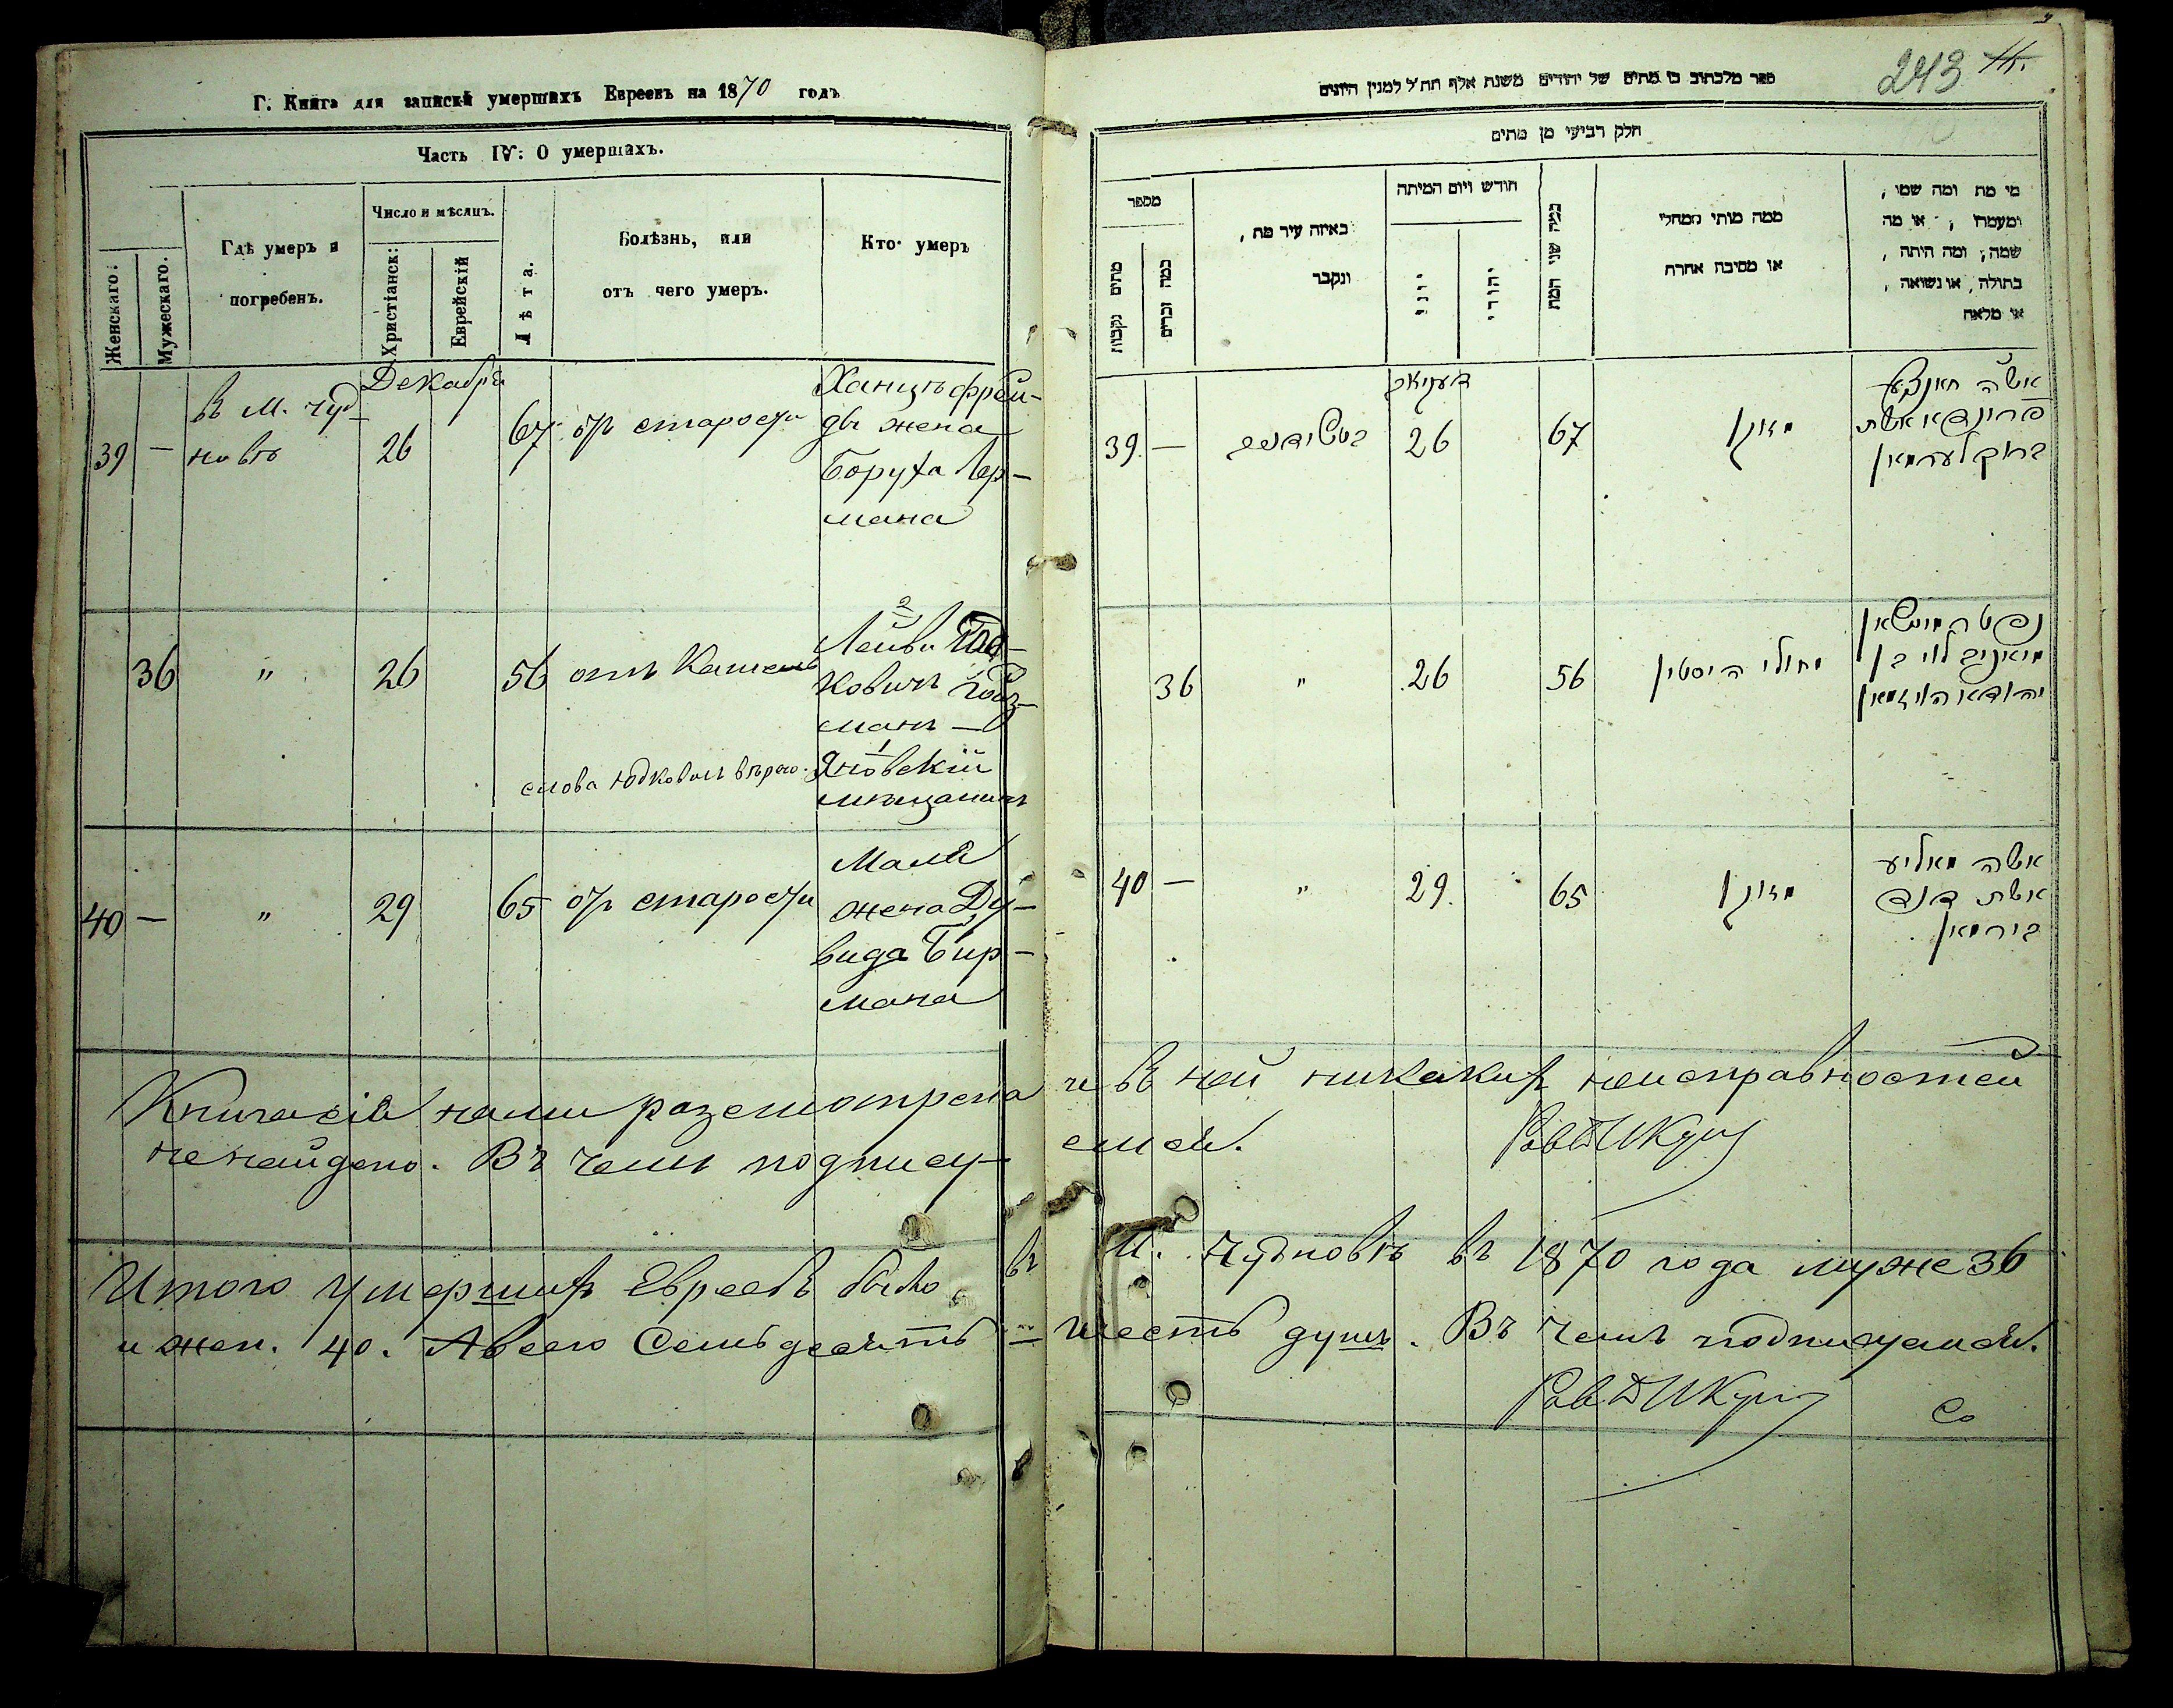 Г. Книга для записки умершихъ Евреевъ на 1870 годъ
Часть IV: О умершихъ.
Женскаго:
Мужескаго.
Гдѣ умеръ и
погребенъ.
Число и мѣсяцъ.
Христіанск:
Еврейскій
Лѣта.
Болѣзнь, или
отъ чего умеръ.
Кто умеръ
Декабря
39 —
въ м. Чуд-
новѣ
26
67
отъ старости
жена
Боруха Лер-
мана
36
"
26
56
отъ
Лейви
ковичъ
манъ —
Яновскій
мѣщанинъ
слова Юдковичъ
40 —
"
29
65
отъ старости
Маля
жена Ду-
вида Бир-
мана
Книга сія нами разсмотрена и въ ней никакихъ неисправностей
не найдено. Въ чемъ подпису- емся.
Итого умершихъ Евреевъ было въ М. Чудновѣ въ 1870 года муже 36
и жен. 40. А всего Семьдесятъ шесть душъ. Въ чемъ подписуемся.
Со
243
ספר מלכתוב בו מתים של יהודים משנת אלף תת״ל למנין היונים
חלק רביעי מן מתים
מספר
מתים נקבות
כמה זכרים
באיזה עיר מת,
ונקבר
חודש ויום המיתה
יווני
יהודי
כמה שני המת
ממה מותו ממחלי
או מסיבה אחרת
מי מת ומה שמו,
ומעמדו, או מה
שמה, ומה היתה,
בתולה, או נשואה,
או מלאה
39 —
26
67
מזוקן
אשה
אשת
ברוך לערמאן
36
"
26
56
לוי בן
40 —
"
29
65
מזוקן
אשה מאליע
אשת דוד
בירמאן